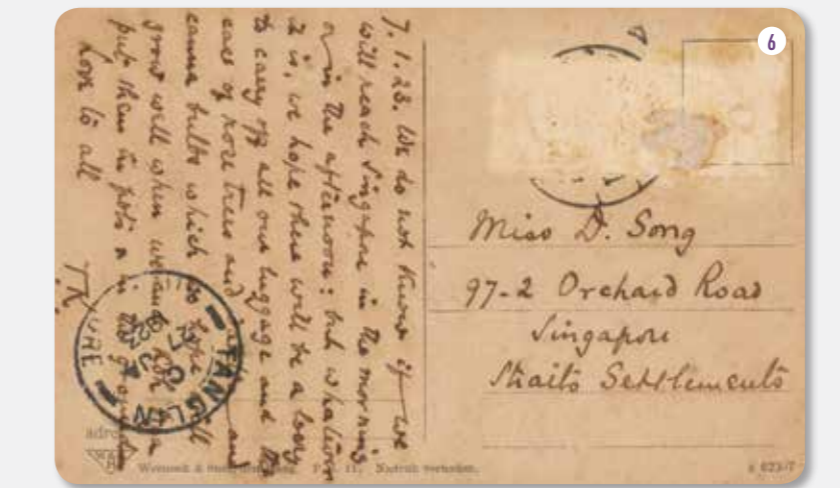 7.1.23. We do not know if we
will reach Singapore in the morning
or in the afternoon: but whatever
it is, we hope there will be a lorry
to carry off all our luggage and the
cases of rose trees and and
canna bulbs which we hope will
grow well when we
put them in pots & in the ground
Love to all
TK
Miss D. Song
97-2 Orchard Road
Singapore
Straits Settlements
TANGLIN
6